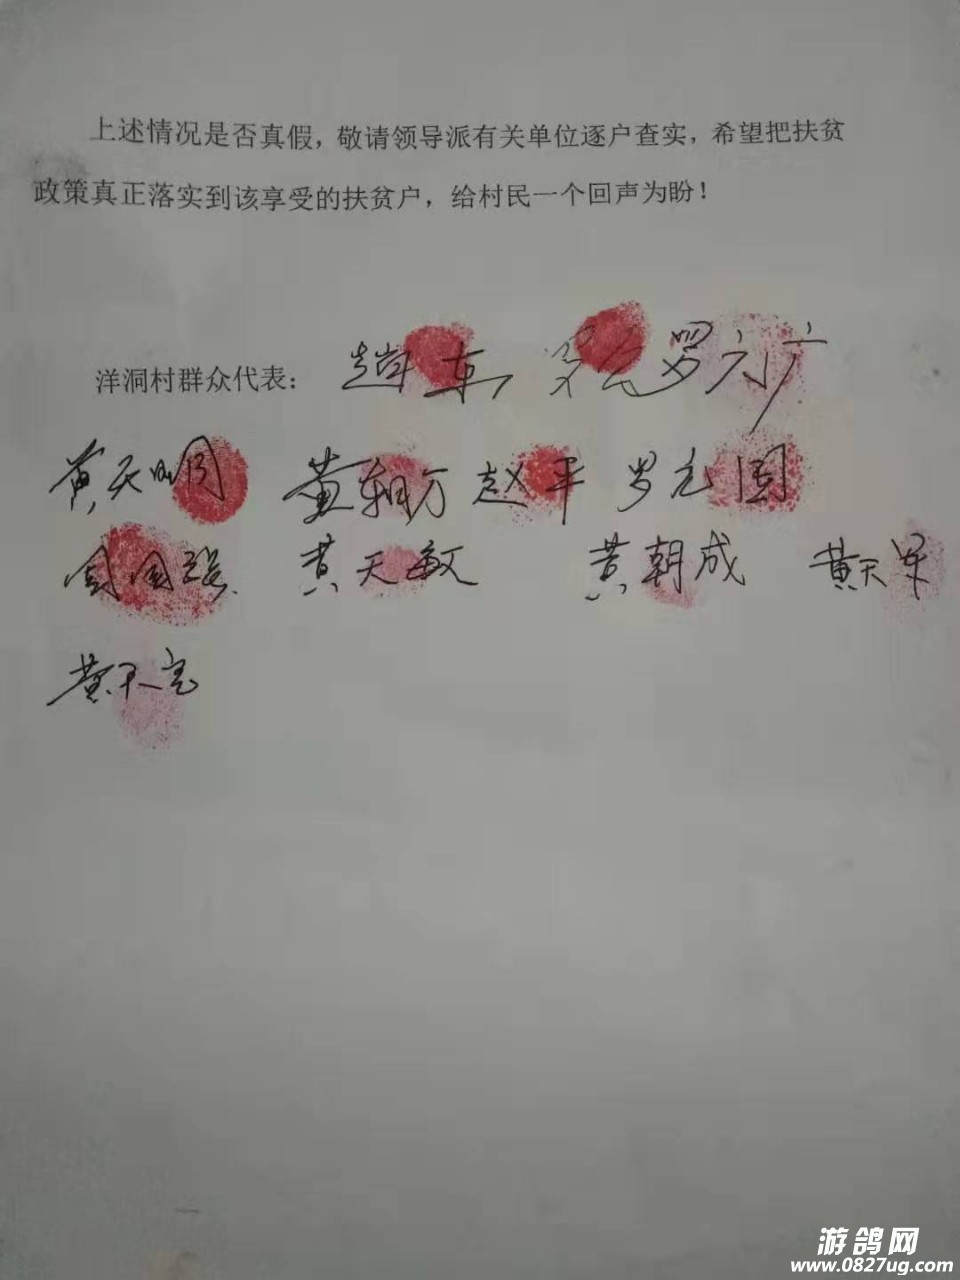 上述情况是否真假，敬请领导派有关单位逐户查实，希望把扶贫
政策真正落实到该享受的扶贫户，给村民一个回声为盼！
洋洞村群众代表：
黄天明 黄朝万 赵平 罗元国
黄天敏 黄朝成 黄天军
黄天亮
游鸽网
www.0827ug.com